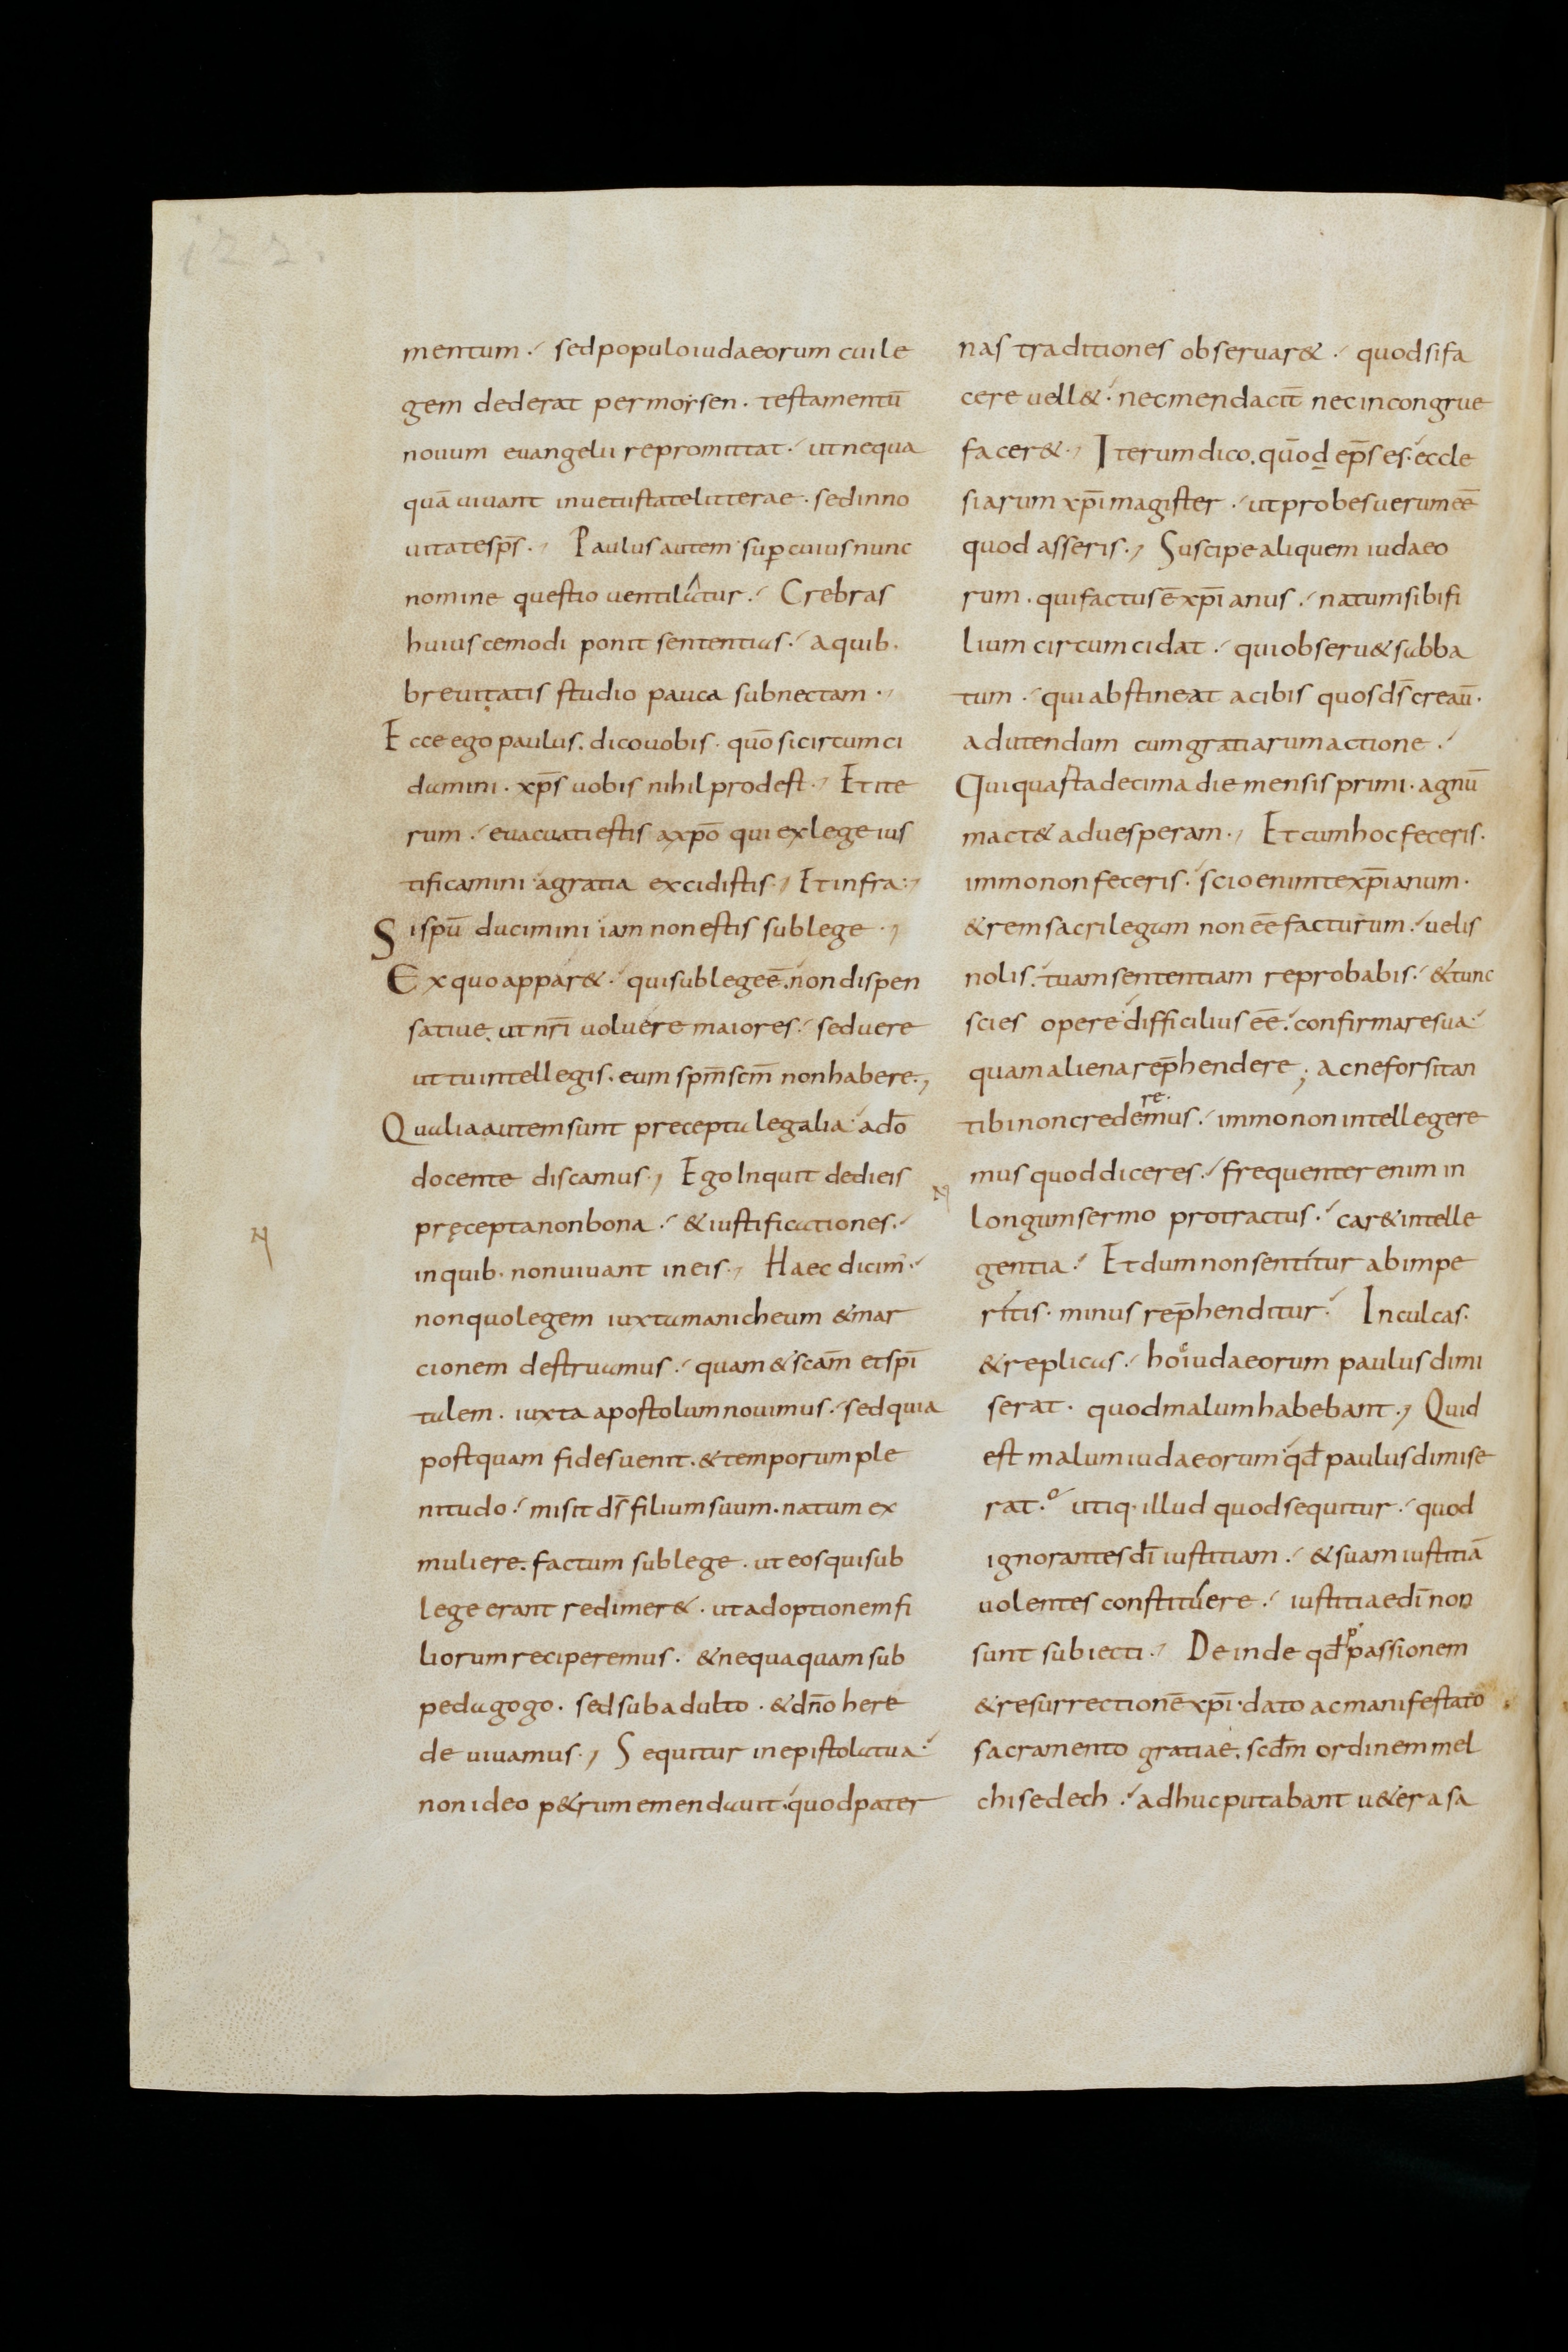 122.
mentum. sed populo iudaeorum cui le
gem dederat per moysen. testamentū
nouum euangelii repromittat. ut nequa
quā uiuant in uetustate litterae. sed in no
uitate sp̄s. Paulus autem sup cuius nunc
nomine questio uentilatur. Crebras
huiuscemodi ponit sententias. a quib.
breuitatis studio pauca subnectam.
Ecce ego paulus. dico uobis. quō si circumci
damini. xp̄s uobis nihil prodest. Et ite
rum. euacuati estis a xp̄o qui ex lege ius
tificamini. a gratia excidistis. Et infra.
Si spū ducimini iam non estis sub lege.
Ex quo appar&. qui sub lege ē. non dispen
satiue. ut nr̄i uoluere maiores. sed uere
ut tu intellegis. eum spm̄ scm̄ non habere.
Qualia autem sunt precepta legalia. a dō
docente discamus. Ego Inquit dedi eis
pręcepta non bona. & iustificationes.
in quib. non uiuant in eis. Haec dicim.
non quo legem iuxta manicheum & mar
cionem destruamus. quam & scām et spī
talem. iuxta apostolum nouimus. sed quia
postquam fides uenit. & temporum ple
nitudo. misit ds̄ filium suum. natum ex
muliere. factum sub lege. ut eos qui sub
lege erant redimer&. ut adoptionem fi
liorum reciperemus. & nequaquam sub
pedagogo. sed sub adulto. & dn̄o here
de uiuamus. Sequitur in epistola tua.
non ideo p&rum emendauit. quod pater
nas traditiones obseruar&. quod si fa
cere uell&. nec mendacit̄ nec incongrue
facer&. Iterum dico. quōd ep̄s es. eccle
siarum xp̄i magister. ut probes uerum eē
quod asseris. Suscipe aliquem iudaeo
rum. qui factus ē xp̄ianus. natum sibi fi
lium circumcidat. qui obseru& sabba
tum. qui abstineat a cibis quos ds̄ creau̅.
ad utendum cum gratiarum actione.
Qui quasta decima die mensis primi. agnū
mact& ad uesperam. Et cum hoc feceris.
immo non feceris. scio enim te xp̄ianum.
& rem sacrilegam non eē facturum. uelis
nolis. tuam sententiam reprobabis. & tunc
scies opere difficilius eē. confirmare sua
quam aliena rep̄hendere; ac ne forsitan
tibi non crederemus. immo non intellegere
mus quod diceres. frequenter enim in
longum sermo protractus. car& intelle
gentia. Et dum non sentitur ab impe
ritis. minus rep̄henditur. Inculcas.
& replicas. hoc iudaeorum paulus dimi
serat. quod malum habebant. Quid
est malum iudaeorum qd̄ paulus dimise
rat. utiq. illud quod sequitur. quod
ignorantes dī iustitiam. & suam iustitiā
uolentes constituere. iustitiae dī non
sunt subiecti. Deinde qd̄ p passionem
& resurrectionē xp̄i. dato ac manifestato
sacramento gratiae. scd̄m ordinem mel
chisedech. adhuc putabant u&era sa